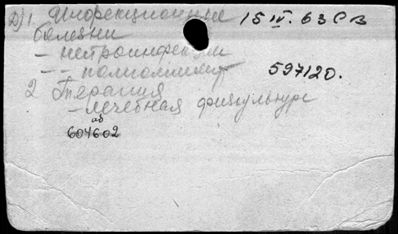 д) 1. Инфекционные 15 IV. 63 СВ
болезни
- нейроинфекции
-"- полиомиелит 597120.
2 Терапия
- лечебная физкультура
аб
604602